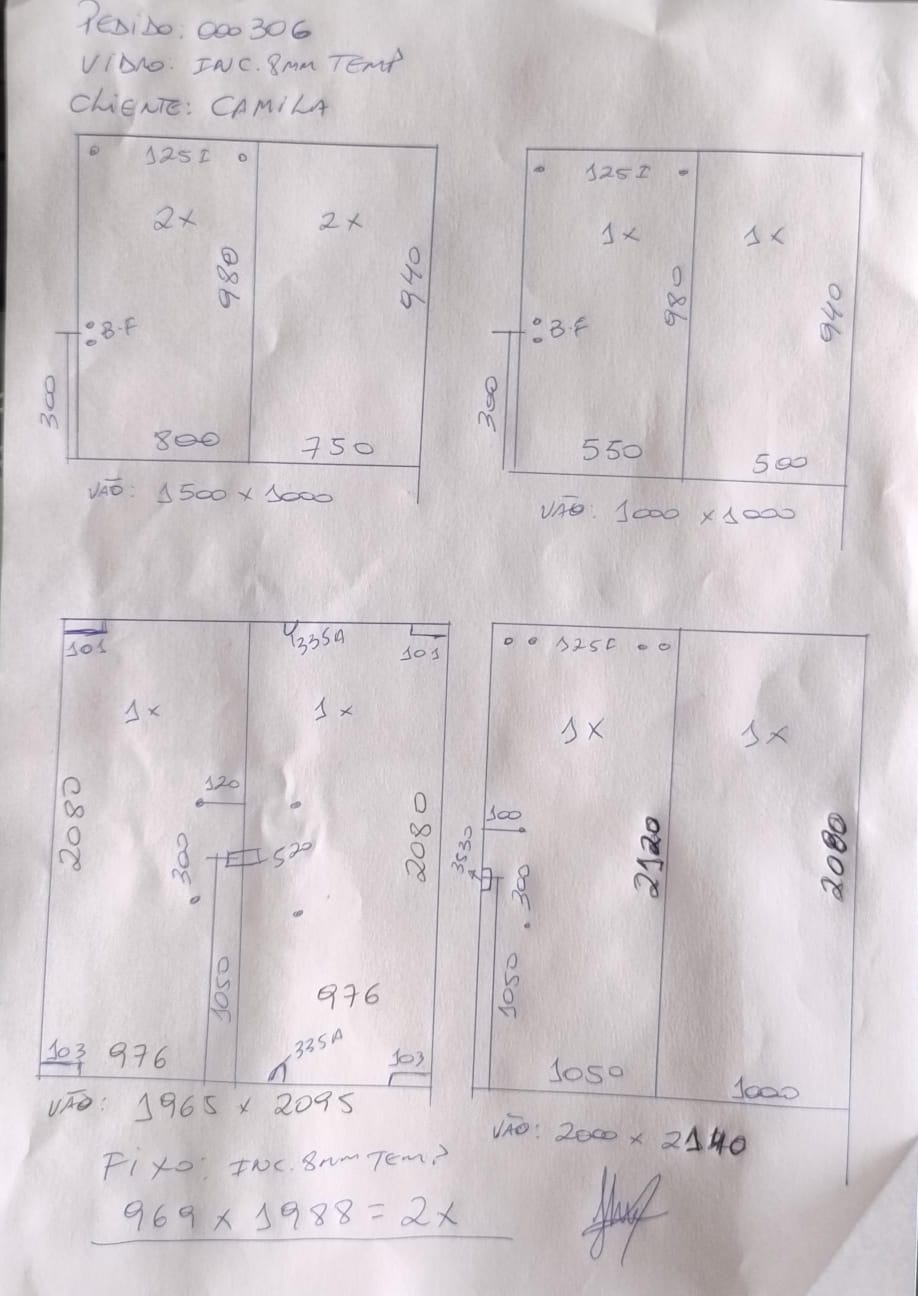 PEDIDO: 000306
VIDRO: INC. 8MM TEMP
CLIENTE: CAMILA
125I
2x
2x
980
940
B.F
300
800
750
VÃO: 1500 x 1000
125I
1x
1x
980
940
B.F
300
550
500
VÃO: 1000 x 1000
101
335A
101
1x
1x
120
2080
2080
300
520
1050
976
335A
103
976
103
VÃO: 1965 x 2095
1x
1x
100
2120
2080
3530
300
1050
1050
1000
VÃO: 2000 x 2140
FIXO: INC. 8MM TEMP
969 x 1988 = 2x